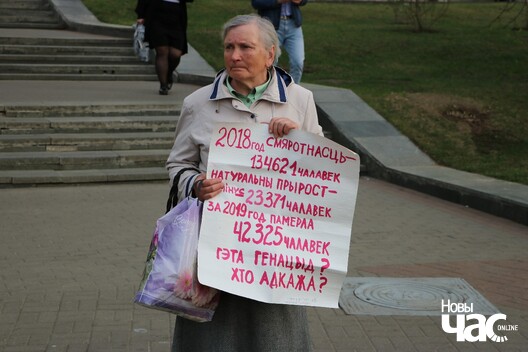 2018 год СМЯРОТНАСЦЬ-
134621 ЧАЛАВЕК
НАТУРАЛЬНЫ ПРЫРОСТ-
мінус 23371 ЧАЛАВЕК
ЗА 2019 год ПАМЕРЛА
42325 ЧАЛАВЕК
ГЭТА ГЕНАЦЫД?
ХТО АДКАЖА?
НОВЫ
ЧАС ONLINE